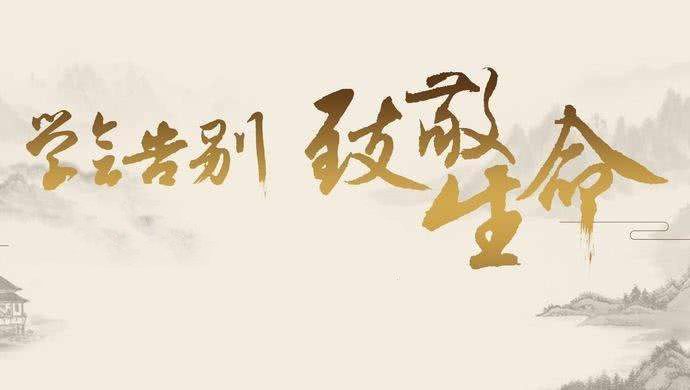 学会告别 致敬生命